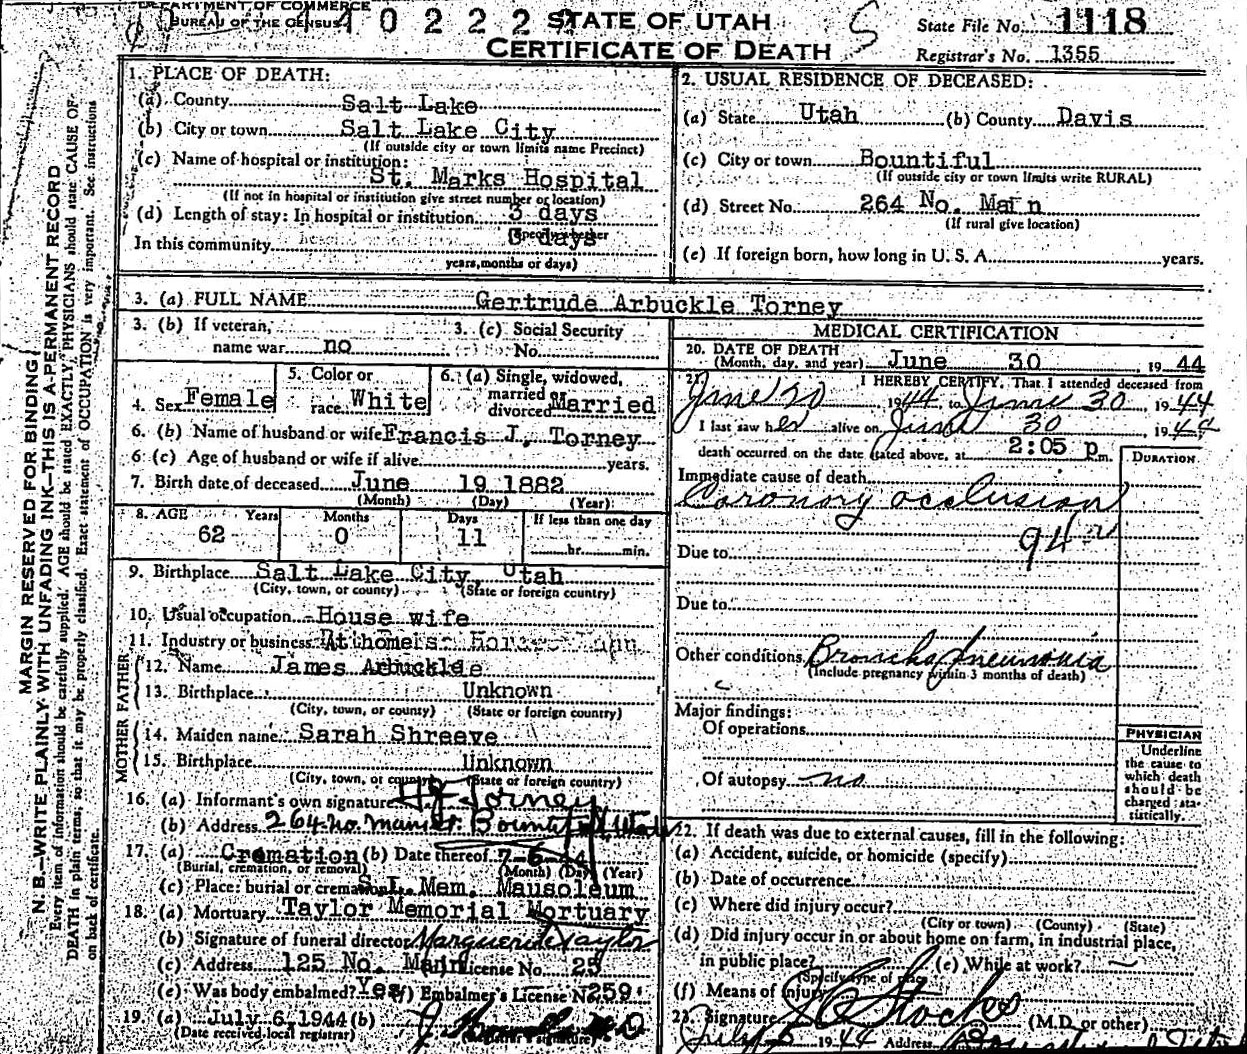 DEPARTMENT OF COMMERCE
BUREAU OF THE CENSUS
STATE OF UTAH
CERTIFICATE OF DEATH
State File No. 1118
Registrar's No. 1355
MARGIN RESERVED FOR BINDING
N. B.—WRITE PLAINLY WITH UNFADING INK—THIS IS A PERMANENT RECORD
Every item of information should be carefully supplied. AGE should be stated EXACTLY. PHYSICIANS should state CAUSE OF
DEATH in plain terms, so that it may be properly classified. Exact statement of OCCUPATION is very important. See instructions
on back of certificate.
1. PLACE OF DEATH:
(a) County Salt Lake
(b) City or town Salt Lake City
(If outside city or town limits name Precinct)
(c) Name of hospital or institution:
St. Marks Hospital
(If not in hospital or institution give street number or location)
(d) Length of stay: In hospital or institution 3 days
(Specify whether
In this community days
years, months or days)
2. USUAL RESIDENCE OF DECEASED:
(a) State Utah (b) County Davis
(c) City or town Bountiful
(If outside city or town limits write RURAL)
(d) Street No. 264 No. Main
(If rural give location)
(e) If foreign born, how long in U. S. A. years.
3. (a) FULL NAME Gertrude Arbuckle Torney
3. (b) If veteran, name war no
3. (c) Social Security No.
4. Sex Female
5. Color or race White
6. (a) Single, widowed, married divorced Married
6. (b) Name of husband or wife Francis J. Torney
6. (c) Age of husband or wife if alive years.
7. Birth date of deceased June 19 1882
(Month) (Day) (Year)
8. AGE Years Months Days If less than one day
62 0 11 hr. min.
9. Birthplace Salt Lake City, Utah
(City, town, or county) (State or foreign country)
10. Usual occupation House wife
11. Industry or business At home
FATHER
12. Name James Arbuckle
13. Birthplace Unknown
(City, town, or county) (State or foreign country)
MOTHER
14. Maiden name Sarah Shreeve
15. Birthplace Unknown
(City, town, or county) (State or foreign country)
16. (a) Informant's own signature Torney
(b) Address 264 no. main st. Bountiful Utah
17. (a) Cremation (b) Date thereof 7-6-44
(Burial, cremation, or removal) (Month) (Day) (Year)
(c) Place: burial or cremation S.L. Mem. Mausoleum
18. (a) Mortuary Taylor Memorial Mortuary
(b) Signature of funeral director Marguerite Taylor
(c) Address 125 No. Main License No. 25
(e) Was body embalmed? Yes (f) Embalmer's License No. 259
19. (a) July 6 1944 (b) M.D.
(Date received local registrar) (Registrar's signature)
MEDICAL CERTIFICATION
20. DATE OF DEATH
(Month, day, and year) June 30 1944
21. I HEREBY CERTIFY, That I attended deceased from
June 20, 1944 to June 30, 1944
I last saw her alive on June 30, 1944
death occurred on the date stated above, at 2:05 p.m.
DURATION
Immediate cause of death
Coronary occlusion
Due to
Due to
Other conditions Broncho pneumonia
(Include pregnancy within 3 months of death)
Major findings:
Of operations
Of autopsy no
PHYSICIAN
Underline
the cause to
which death
should be
charged sta-
tistically.
22. If death was due to external causes, fill in the following:
(a) Accident, suicide, or homicide (specify)
(b) Date of occurrence
(c) Where did injury occur?
(City or town) (County) (State)
(d) Did injury occur in or about home on farm, in industrial place,
in public place? (e) While at work?
(Specify type of place)
(f) Means of injury
23. Signature Stocks (M.D. or other)
July 1944 Address